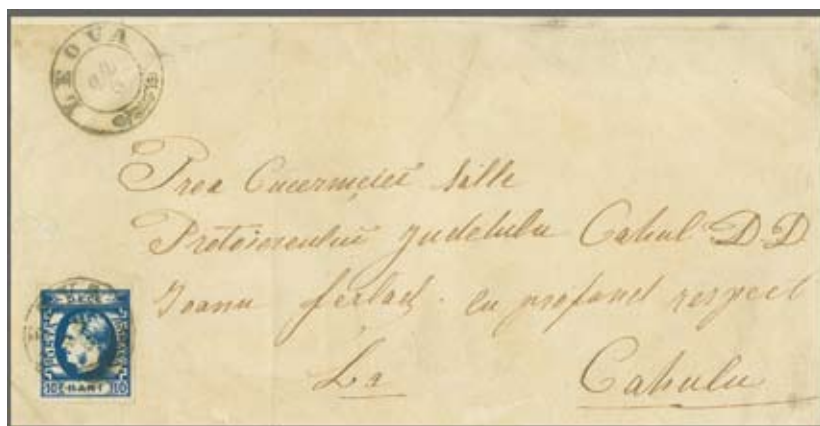 LEOVA
Prea Cucerniciei Salle
Protoiereului judetului Cahul D D
Ioanu cu profund respect
La Cahulu
DECE
POSTA ROMANA
10 BANI 10